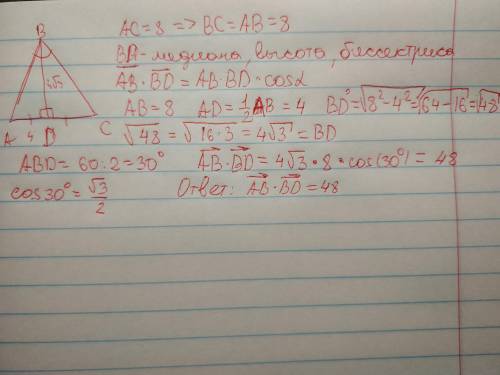 AC=8 => BC=AB=8
B
BD - медиана, высота, биссектриса
AB · BD = AB · BD · cosα
4√3
AB=8 AD=1/2 AB=4 BD=√8²-4²=√64-16=√48
A 4 D C
√48 = √16·3 = 4√3 = BD
ABD = 60:2=30° AB·BD = 4√3 · 8 · cos(30°) = 48
cos30°=√3/2 Ответ: AB·BD=48